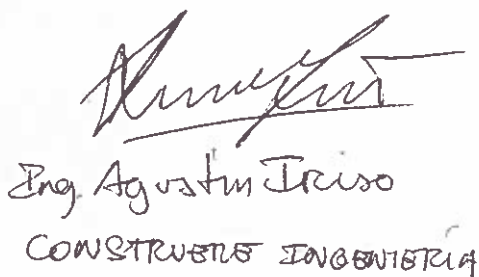 Ing Agustin Iriso
CONSTRUERE INGENIERIA